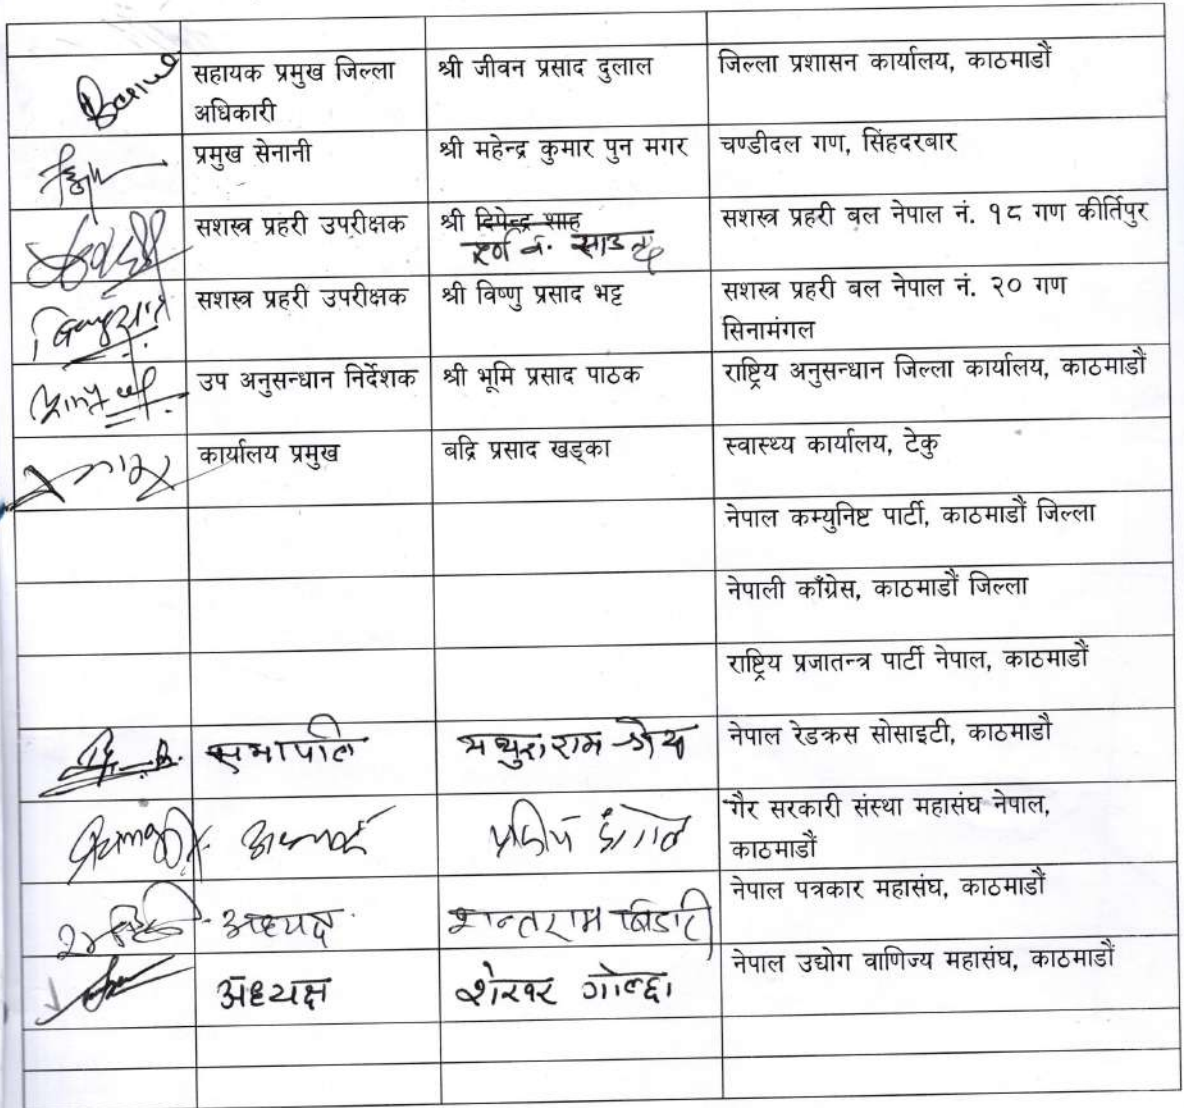 सहायक प्रमुख जिल्ला श्री जीवन प्रसाद दुलाल जिल्ला प्रशासन कार्यालय, काठमाडौं
अधिकारी
प्रमुख सेनानी श्री महेन्द्र कुमार पुन मगर चण्डीदल गण, सिंहदरबार
सशस्त्र प्रहरी उपरीक्षक श्री दिपेन्द्र शाह सशस्त्र प्रहरी बल नेपाल नं. १८ गण कीर्तिपुर
सशस्त्र प्रहरी उपरीक्षक श्री विष्णु प्रसाद भट्ट सशस्त्र प्रहरी बल नेपाल नं. २० गण
सिनामंगल
उप अनुसन्धान निर्देशक श्री भूमि प्रसाद पाठक राष्ट्रिय अनुसन्धान जिल्ला कार्यालय, काठमाडौं
कार्यालय प्रमुख बद्रि प्रसाद खड्का स्वास्थ्य कार्यालय, टेकु
नेपाल कम्युनिष्ट पार्टी, काठमाडौं जिल्ला
नेपाली काँग्रेस, काठमाडौं जिल्ला
राष्ट्रिय प्रजातन्त्र पार्टी नेपाल, काठमाडौं
सभापति नेपाल रेडक्रस सोसाइटी, काठमाडौं
गैर सरकारी संस्था महासंघ नेपाल,
काठमाडौं
अध्यक्ष नेपाल पत्रकार महासंघ, काठमाडौं
अध्यक्ष शेखर गोल्छा नेपाल उद्योग वाणिज्य महासंघ, काठमाडौं